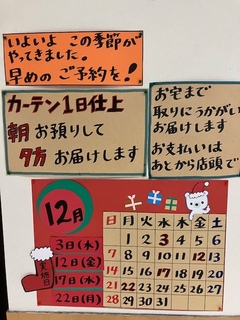 いよいよ この季節が
やってきました。
早めの ご予約を！
カーテン1日仕上
朝お預りして
夕方お届けします
お宅まで
取りにうかがい
お届けします
お支払いは
あとから店頭で
12月
実施日
3日(水)
12日(金)
17日(水)
22日(月)
日月火水木金土
1 2 3 4 5 6
7 8 9 10 11 12 13
14 15 16 17 18 19 20
21 22 23 24 25 26 27
28 29 30 31